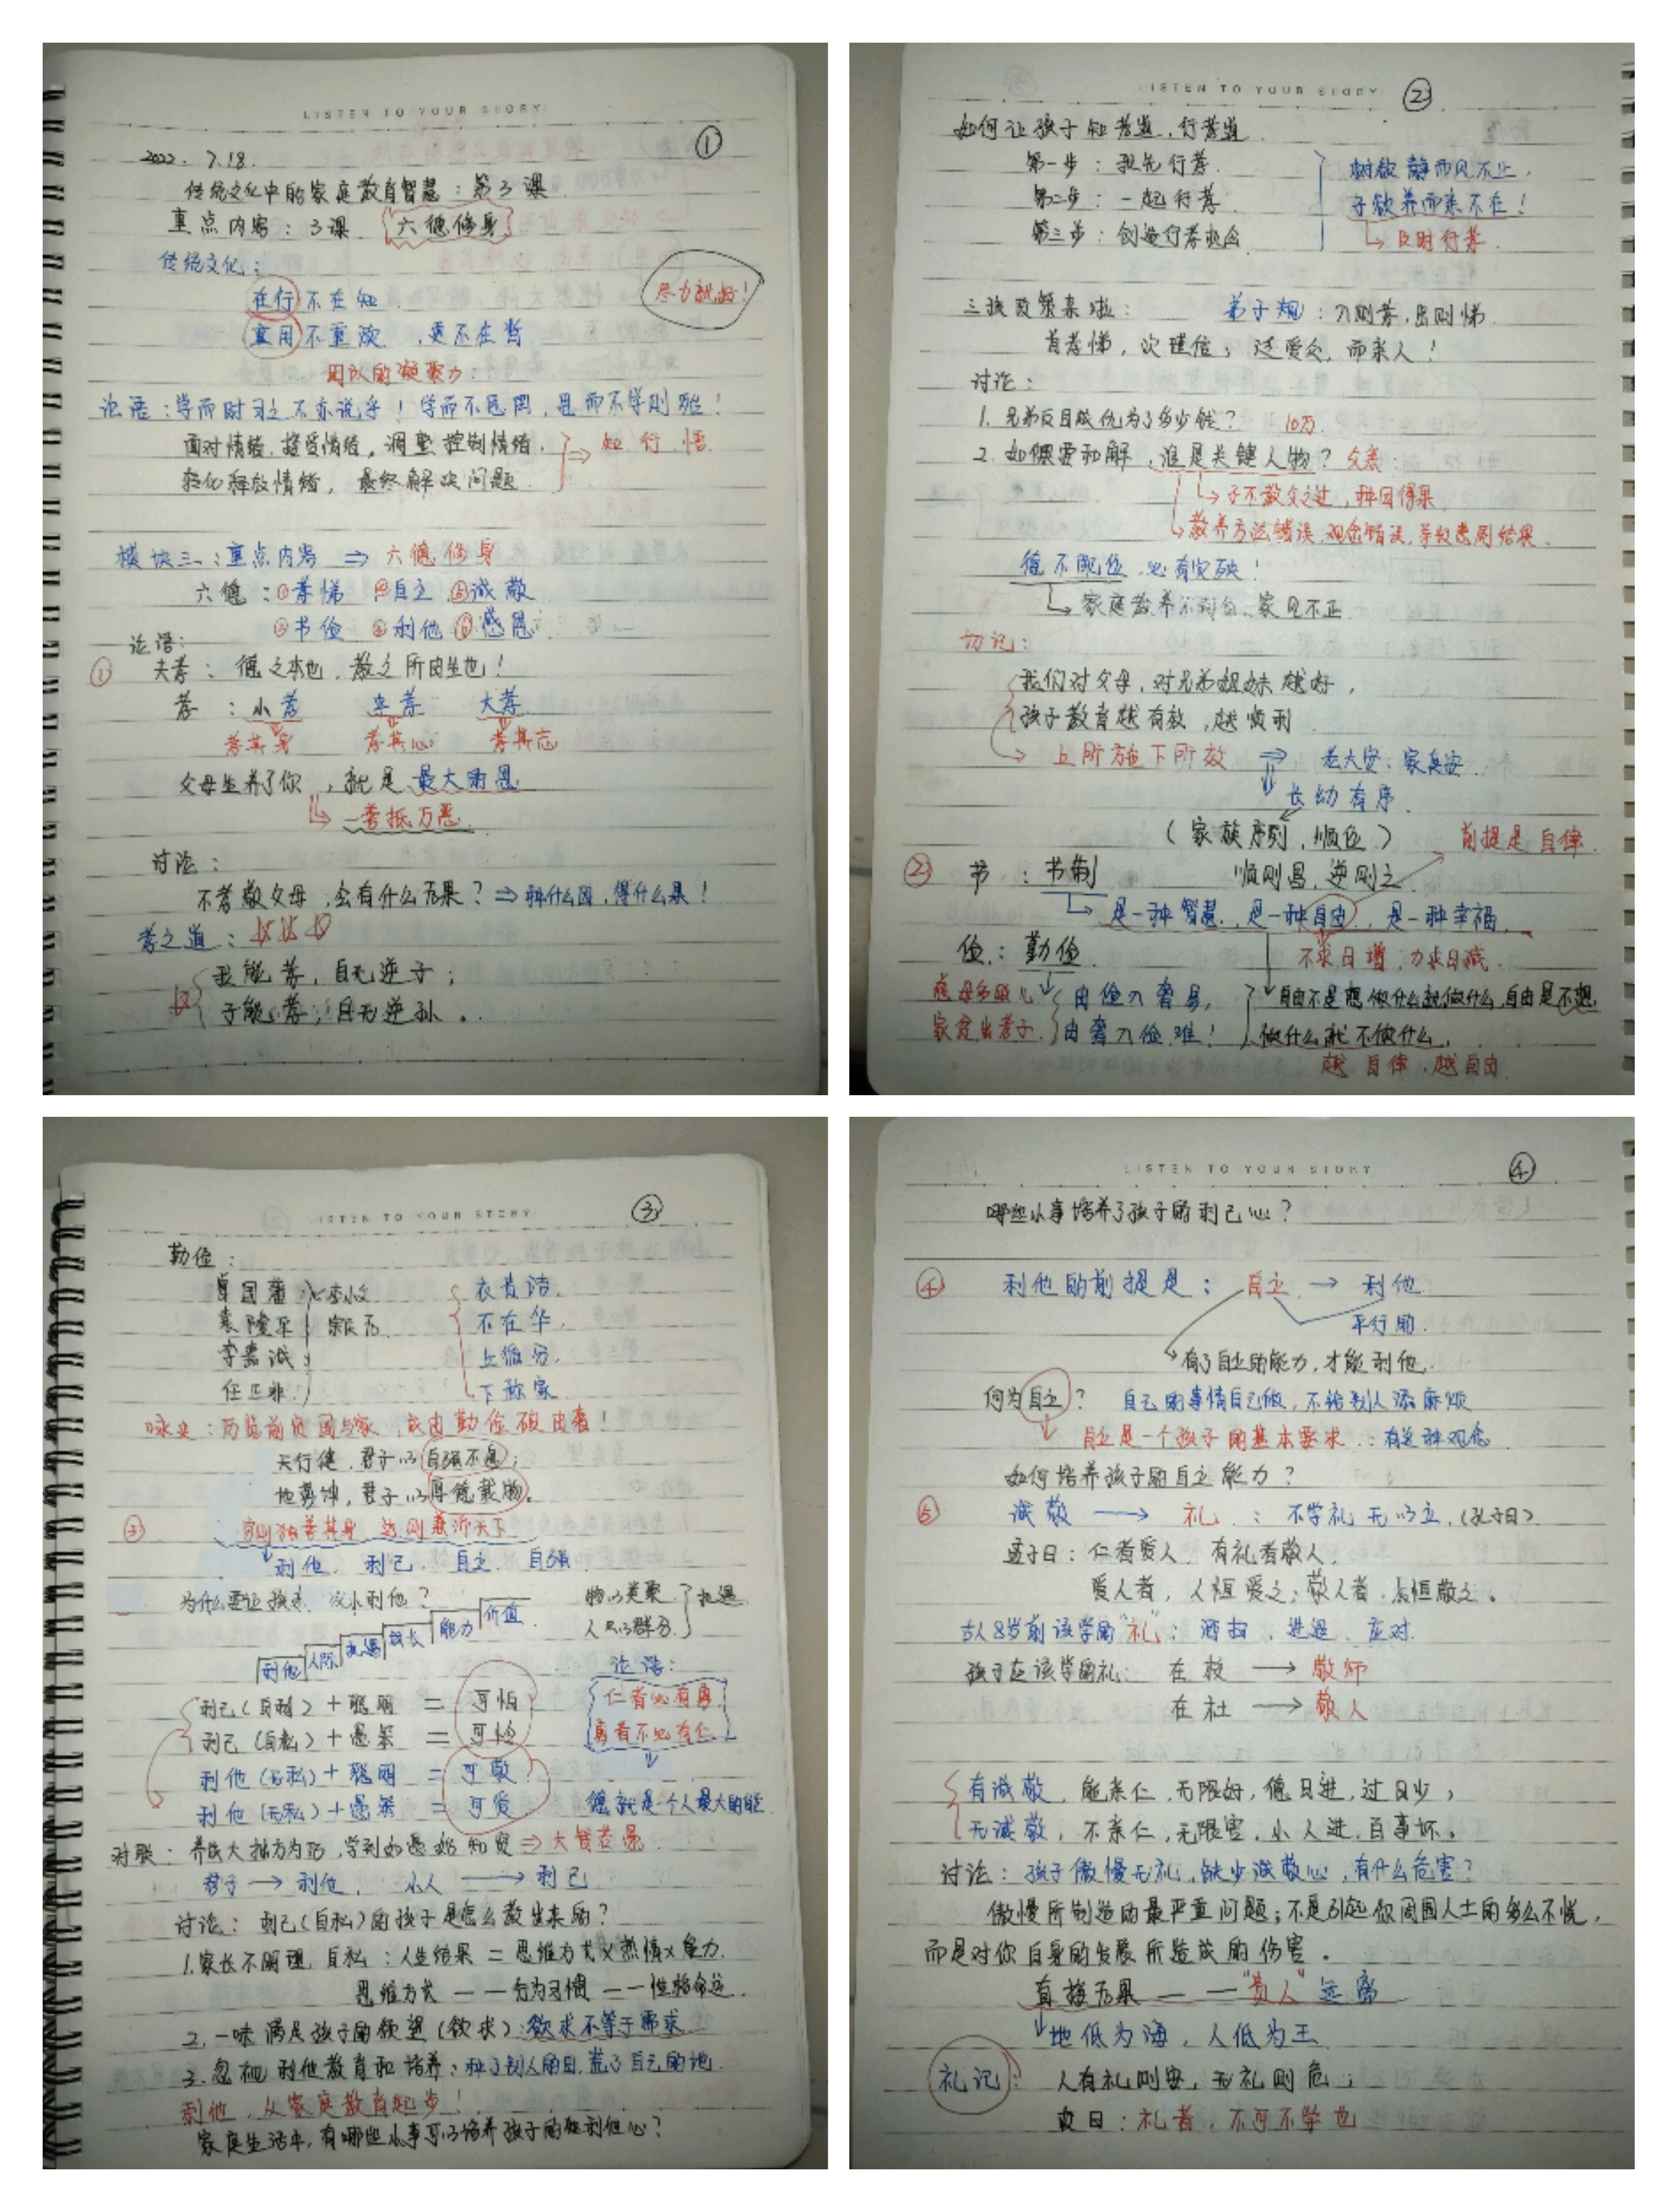 LISTEN TO YOUR STORY
①
2022. 7.18.
传统文化中的家庭教育智慧：第3课
重点内容：3课 六德修身
传统文化：
在行不在知
重用不重激，更不在哲
尽力就好！
团队的凝聚力：
论语：学而时习之不亦说乎！学而不思罔，思而不学则殆！
面对情绪，接受情绪，调整控制情绪，
转化释放情绪，最终解决问题
⇒ 知 行 悟
模块三：重点内容 ⇒ 六德修身
六德：①孝悌 自立 ⑤诚敬
节俭 利他 ⑥感恩
论语：
① 夫孝：德之本也，教之所由生也！
孝：小孝 中孝 大孝
孝其身 孝其心 孝其志
父母生养了你，就是最大的恩
一孝抵万恶
讨论：
不孝敬父母，会有什么后果？⇒种什么因，得什么果！
孝之道：
我能孝，自无逆子；
子能孝；自无逆孙。
LISTEN TO YOUR STORY
②
如何让孩子知孝道，行孝道
第一步：我先行孝
第二步：一起行孝
第三步：创造行孝机会
树欲静而风不止，
子欲养而亲不在！
及时行孝
三孩政策来啦： 弟子规：入则孝，出则悌
首孝悌，次谨信；泛爱众，而亲人！
讨论：
1. 兄弟反目成仇为了多少钱？ 10万
2. 如果要和解，谁是关键人物？父亲：
子不教父之过，种因得果
教养方法错误，观念错误，导致悲剧结果．
德不配位，必有灾殃！
家庭教养不到位，家风不正
切记：
我们对父母，对兄弟姐妹越好，
孩子教育越有效，越顺利
上所施下所效 ⇒ 老大安，家真安
长幼有序
（家族序列，顺位）
前提是自律
② 节：节制 顺则昌，逆则亡
是一种智慧，是一种自由，是一种幸福
俭：勤俭
不求日增，力求日减
慈母多败儿
家贫出孝子
由俭入奢易，
由奢入俭难！
自由不是想做什么就做什么，自由是不想
做什么就不做什么，
越自律，越自由
LISTEN TO YOUR STORY
③
勤俭：
曾国藩
袁隆平
李嘉诚
任正非
衣贵洁，
不在华，
上循分，
下称家
咏史：历览前贤国与家，成由勤俭破由奢！
天行健，君子以自强不息；
地势坤，君子以厚德载物。
③ 穷则独善其身 达则兼济天下
利他 利己 自立 自强
为什么要让孩子从小利他？
物以类聚
人以群分
机遇
利他 人际 机遇 成长 能力 价值
论语：
仁者必有勇
勇者不必有仁
利己（自私）＋聪明 ＝ 可怕
利己（自私）＋愚笨 ＝ 可怜
利他（无私）＋聪明 ＝ 可敬
利他（无私）＋愚笨 ＝ 可爱
德就是个人最大的能
对联：养成大拙方为巧，学到如愚始知贤⇒大智若愚
君子→利他，小人→利己
讨论：利己（自私）的孩子是怎么教出来的？
1. 家长不明理，自私：人生结果＝思维方式×热情×能力
思维方式——行为习惯——性格命运．
2. 一味满足孩子的欲望（欲求）：欲求不等于需求
3. 忽视利他教育和培养：种了别人的田，荒了自己的地
利他，从家庭教育起步！
家庭生活中，有哪些小事可以培养孩子的利他心？
LISTEN TO YOUR STORY
④
哪些小事培养了孩子的利己心？
④ 利他的前提是：自立→利他
平行的
有了自立的能力，才能利他
何为自立？ 自己的事情自己做，不给别人添麻烦
自立是一个孩子的基本要求：有这种观念
如何培养孩子的自立能力？
⑤ 诚敬 → 礼：不学礼无以立，（孔子曰）
孟子曰：仁者爱人，有礼者敬人，
爱人者，人恒爱之；敬人者，人恒敬之。
古人8岁前该学的"礼"：洒扫、进退、应对
孩子应该学的礼：在校→敬师
在社→敬人
有诚敬，能亲仁，无限好，德日进，过日少；
无诚敬，不亲仁，无限害，小人进，百事坏。
讨论：孩子傲慢无礼，缺少诚敬心，有什么危害？
傲慢所制造的最严重问题；不是引起你周围人士的多么不悦，
而是对你自身的发展所造成的伤害。
直接后果——"贵人"远离
地低为海，人低为王
礼记：人有礼则安，无礼则危；
故曰：礼者，不可不学也